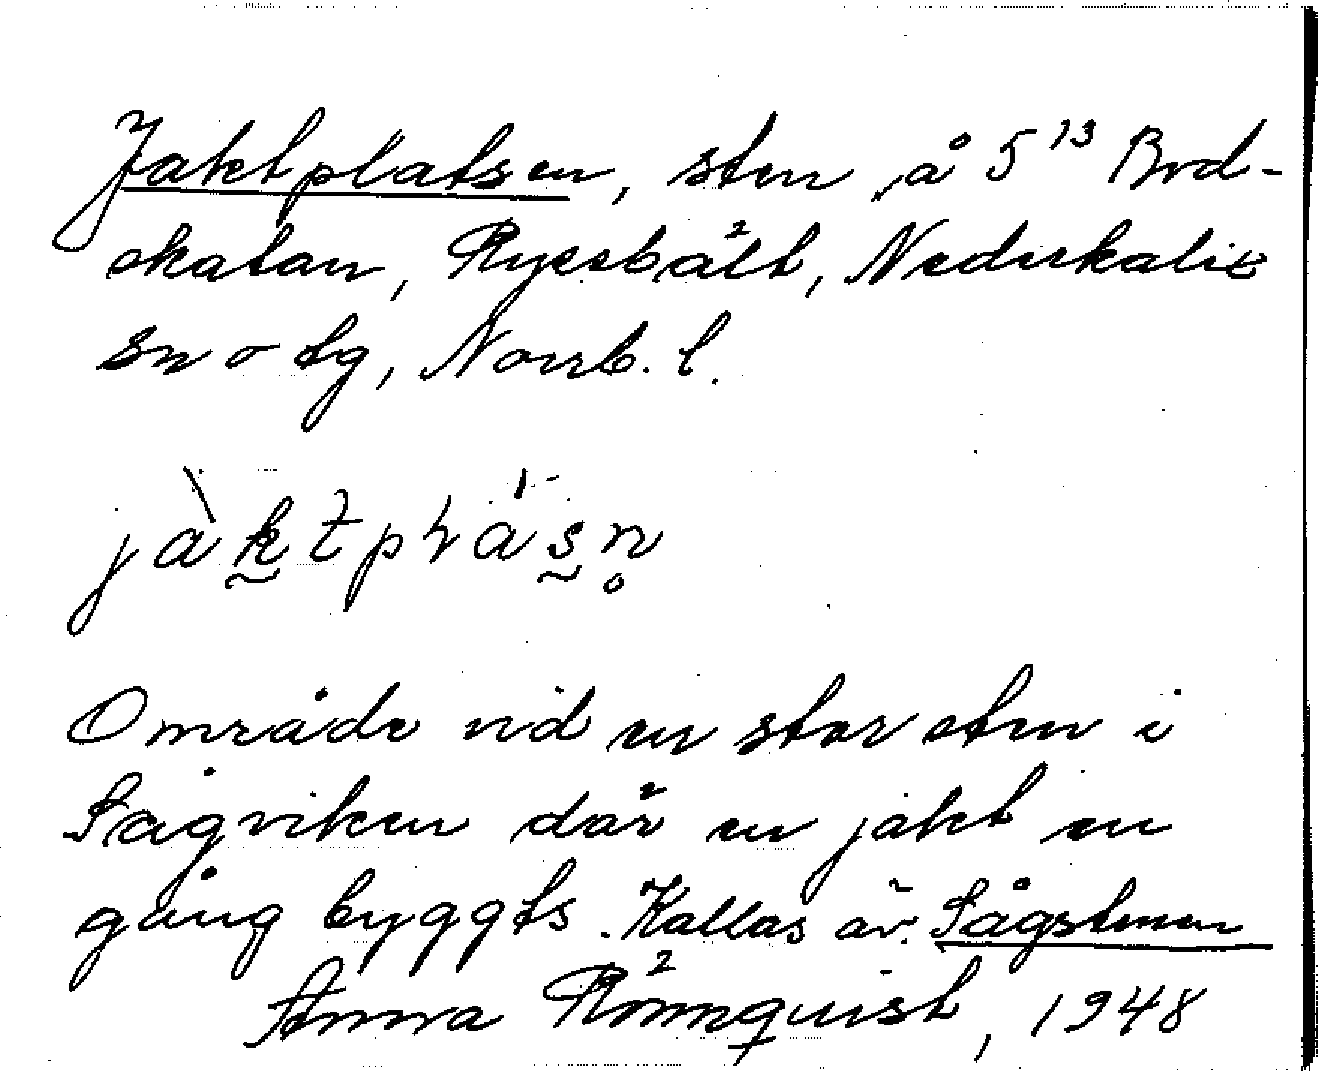 Jaktplatsen, sten, å 5¹³ Brd-
skatan, Ryssbält, Nederkalix
sn o tg, Norrb. l.
Område vid en stor sten i
Sågviken där en jakt en
gång byggts. Kallas äv. Sågstenen
Anna Rönnquist, 1948